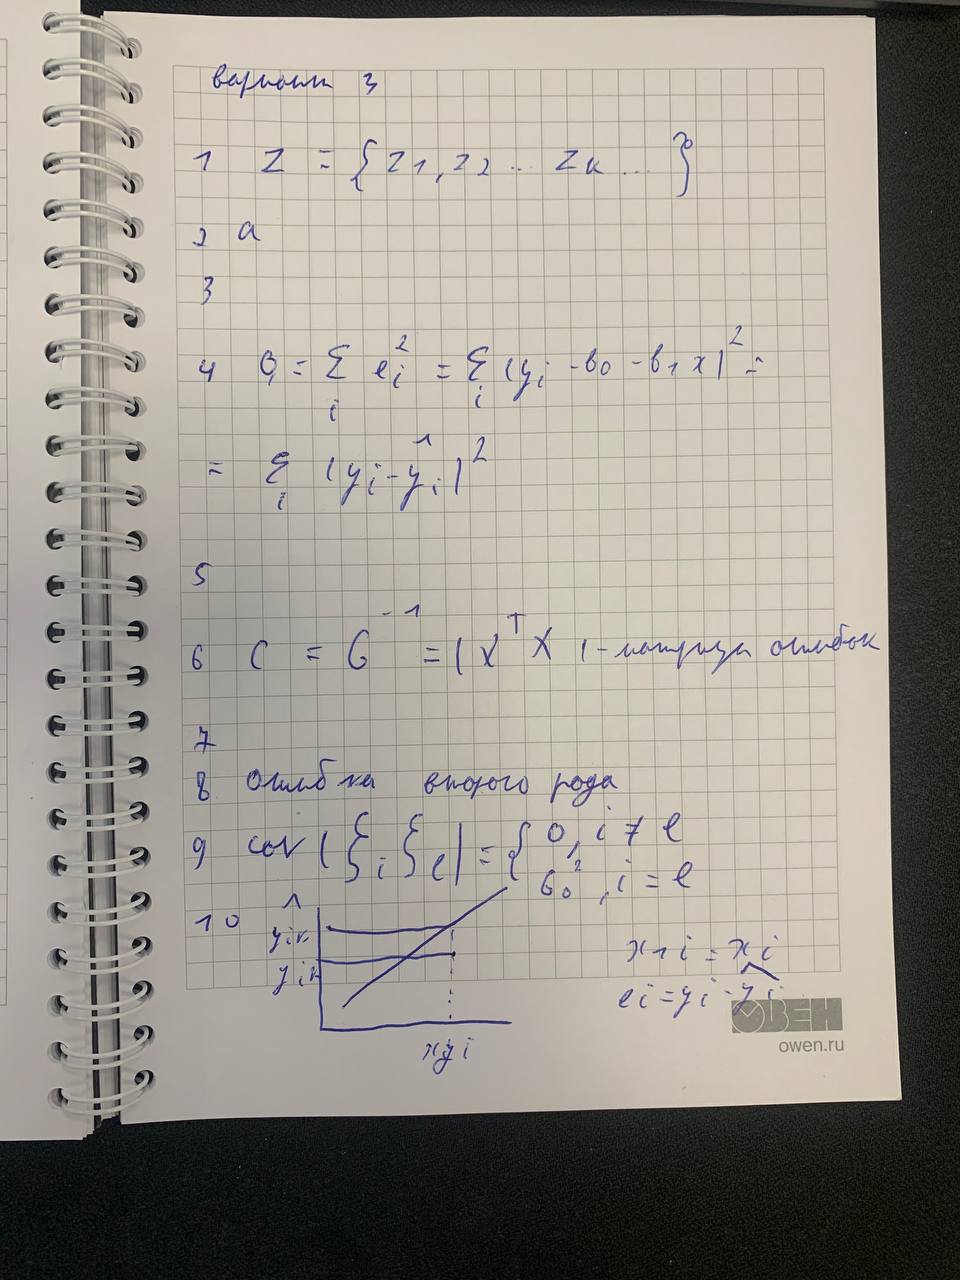 вариант 3
1 Z = {z1, z2 ... zk ... }
2 а
3
4 Q = Σ_i e_i^2 = Σ_i (y_i - b0 - b1 x)^2 =
= Σ_i (y_i - ŷ_i)^2
5
6 C = G^-1 = (X^T X) - матрица ошибок
7
8 ошибка второго рода
9 cov(ξ_i ξ_l) = { 0, i ≠ l
σ_0^2, i = l
10 ŷ_iк
y_iк
x_1i = x_i
e_i = y_i - ŷ_i
ОВЕН
owen.ru